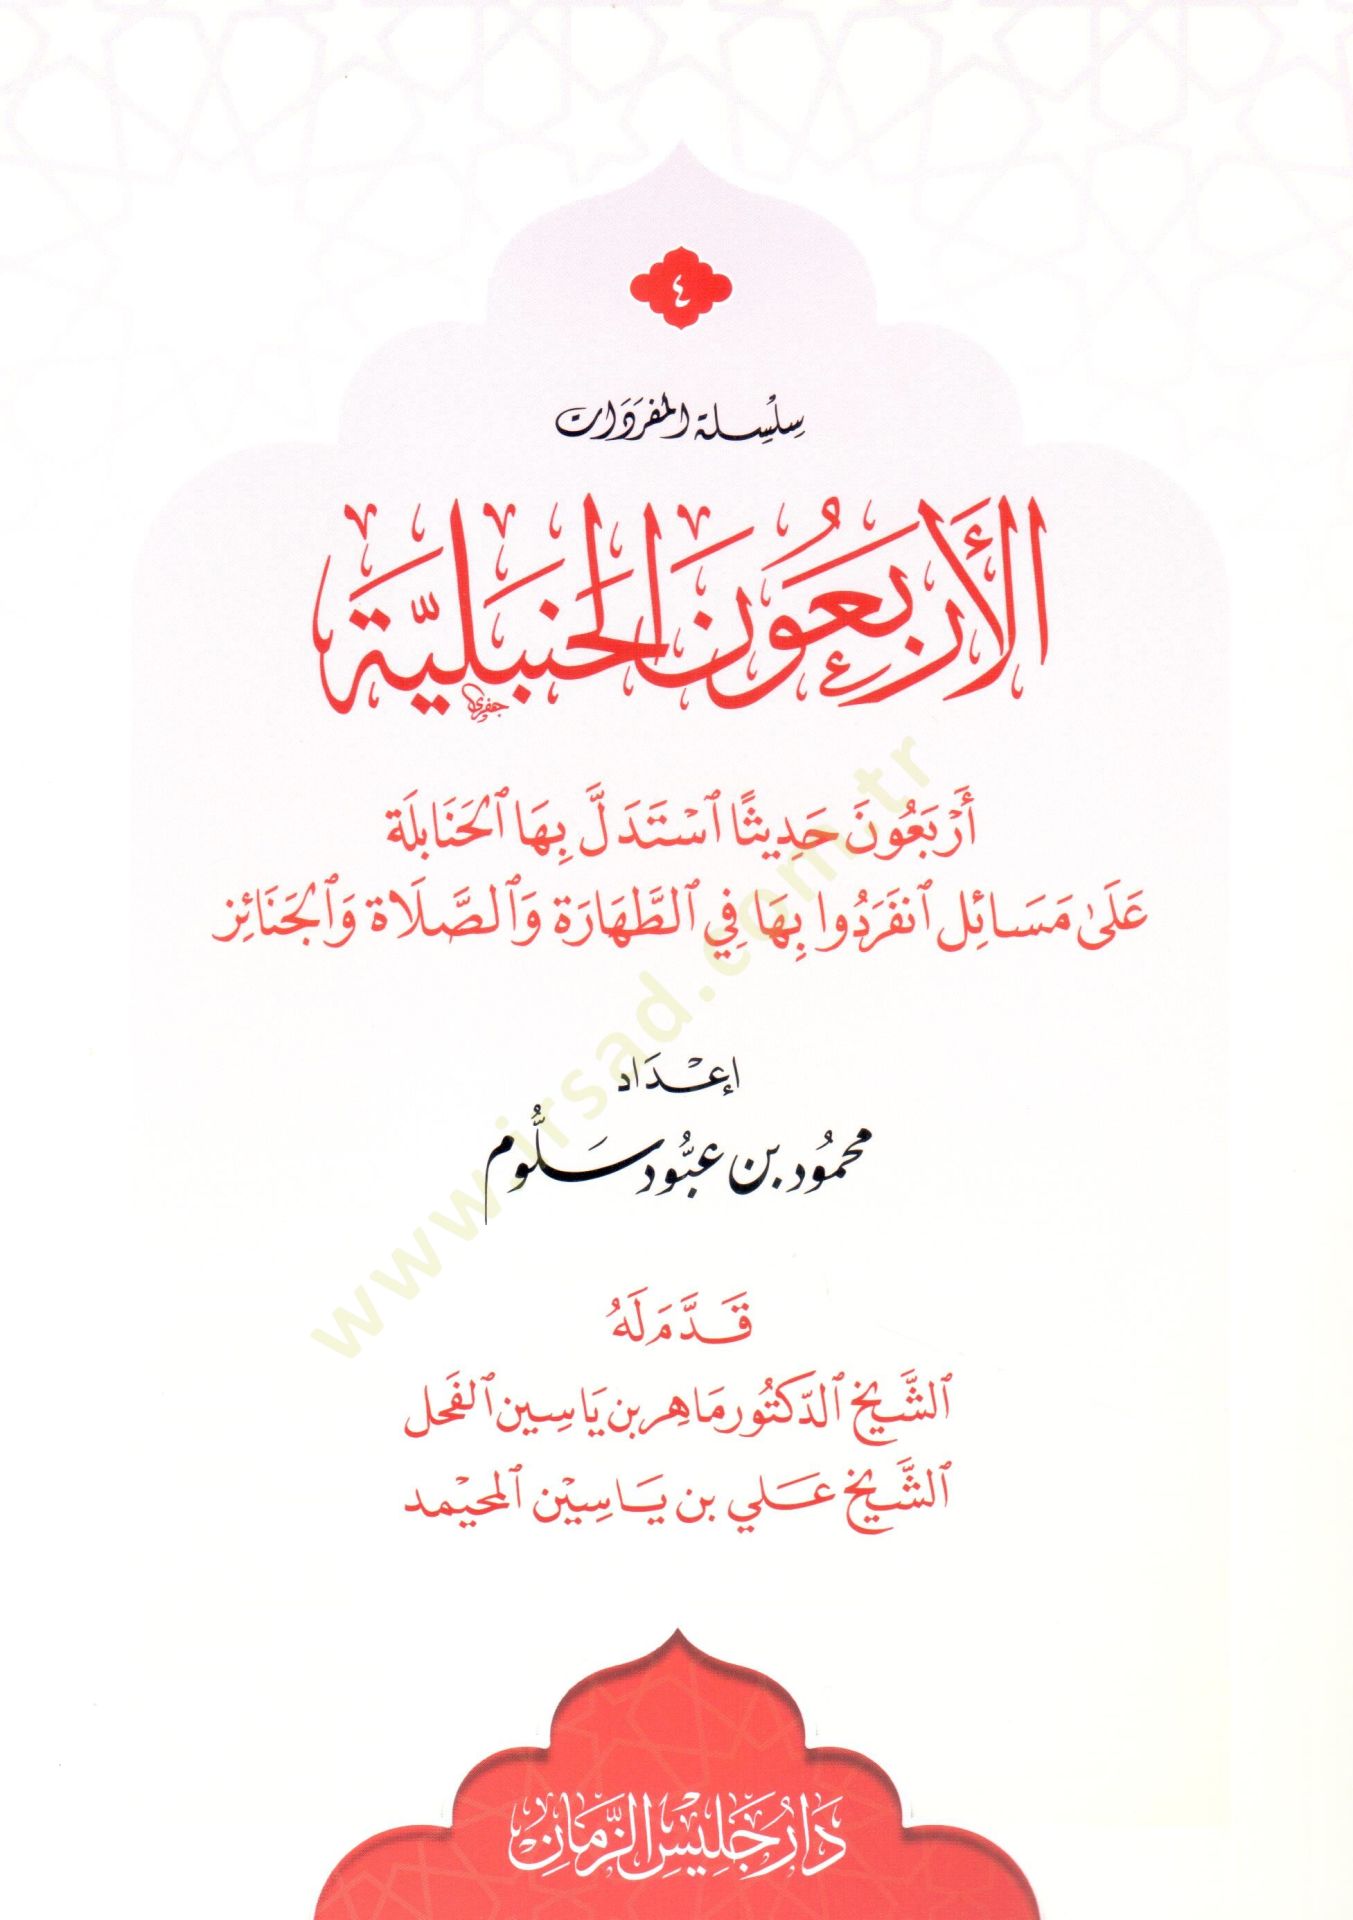 ٤
سِلْسِلة المفرَدَات
الأَربَعُونَ الحَنبَليَّة
أَرْبَعُونَ حَدِيثًا ٱسْتَدَلَّ بِهَا ٱلحَنَابلَة
عَلَىٰ مَسَائِل ٱنفَرَدُوا بِهَا فِي ٱلطَّهَارَة وَٱلصَّلَاة وَٱلجَنَائِز
إعْدَاد
محمُود بن عبُّود سَلُّوم
قَدَّمَ لَهُ
ٱلشَّيخ ٱلدّكتُور مَاهِر بن يَاسِين ٱلفَحَل
ٱلشَّيخ عَلي بن يَاسِيْن ٱلمحيْمد
دَارُ جَلِيْسِ الزَّمَانِ
www.irsad.com.tr